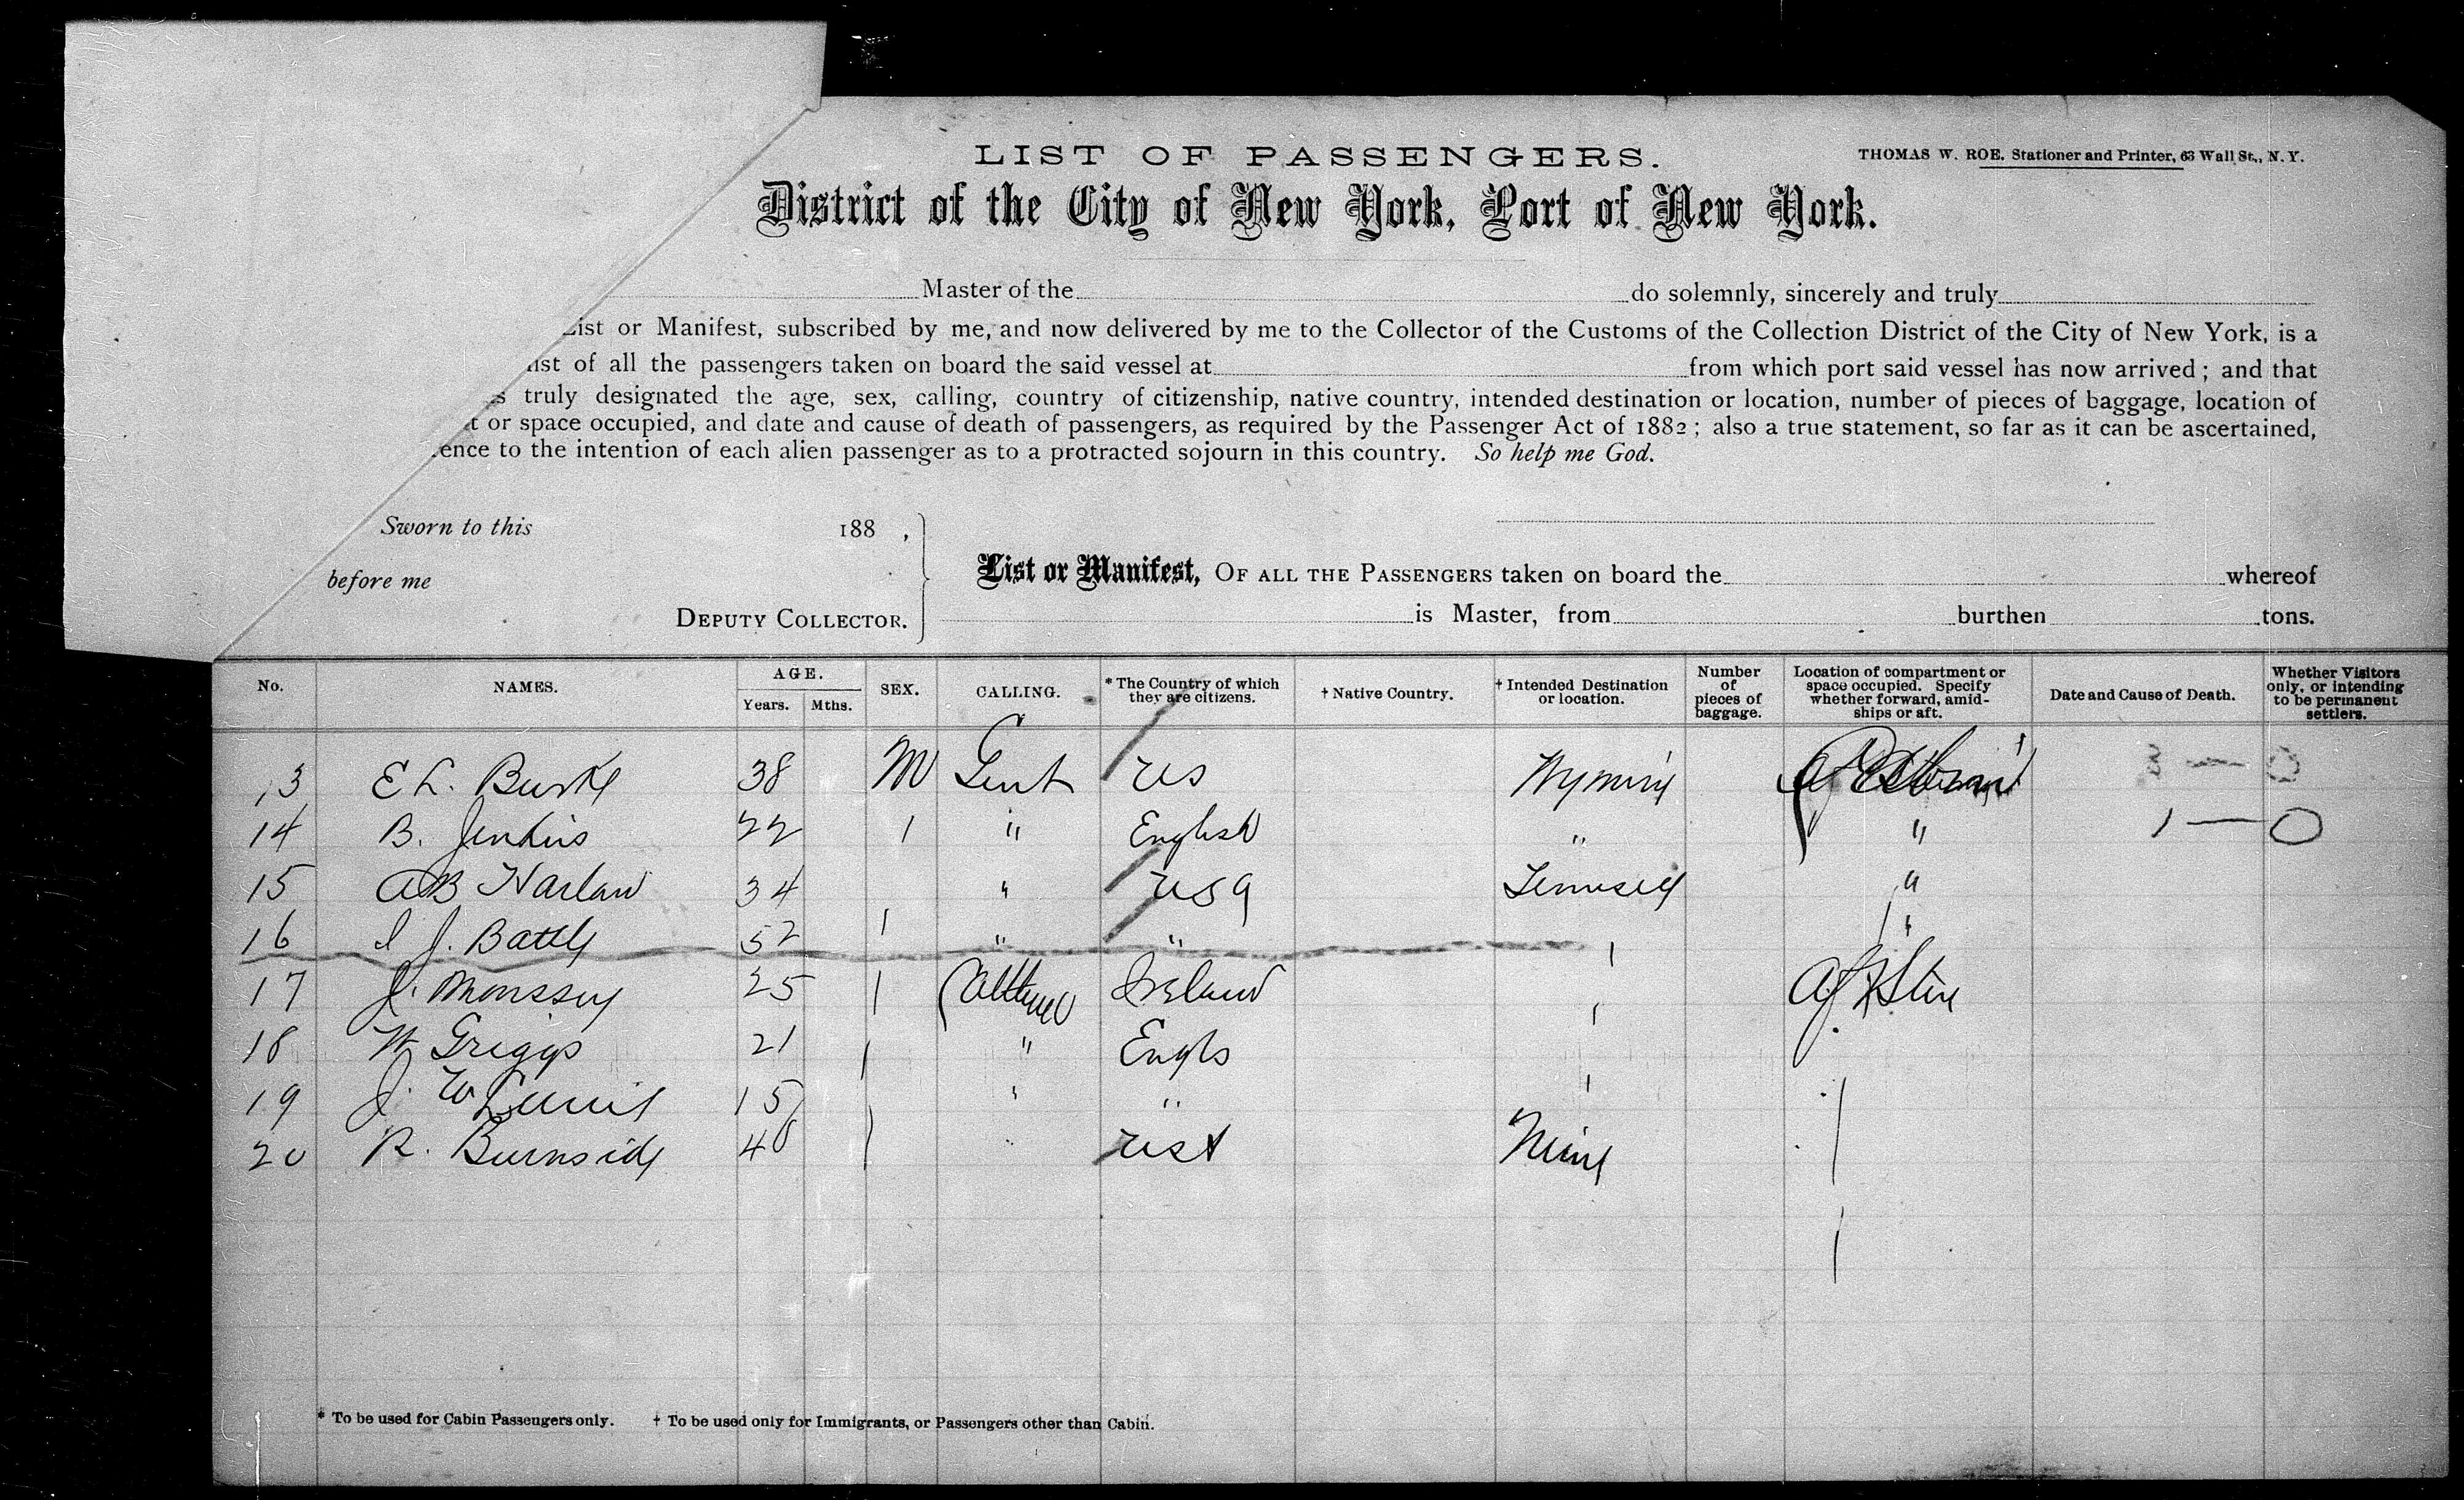 LIST OF PASSENGERS.
THOMAS W. ROE, Stationer and Printer, 63 Wall St., N.Y.
District of the City of New York, Port of New York.
Master of the do solemnly, sincerely and truly
List or Manifest, subscribed by me, and now delivered by me to the Collector of the Customs of the Collection District of the City of New York, is a
list of all the passengers taken on board the said vessel at from which port said vessel has now arrived; and that
truly designated the age, sex, calling, country of citizenship, native country, intended destination or location, number of pieces of baggage, location of
or space occupied, and date and cause of death of passengers, as required by the Passenger Act of 1882; also a true statement, so far as it can be ascertained,
ence to the intention of each alien passenger as to a protracted sojourn in this country. So help me God.
Sworn to this 188 ,
before me
DEPUTY COLLECTOR.
List or Manifest, OF ALL THE PASSENGERS taken on board the whereof
is Master, from burthen tons.
No. NAMES. AGE. Years. Mths. SEX. CALLING. * The Country of which they are citizens. † Native Country. † Intended Destination or location. Number of pieces of baggage. Location of compartment or space occupied. Specify whether forward, amidships or aft. Date and Cause of Death. Whether Visitors only, or intending to be permanent settlers.
13 E L. Burke 38 M Gent US
14 B. Jenkins 22 " English " " 1 — O
15 AB Harlan 34 " USA "
16 J. Battle 52 " "
17 J. 25 Ireland
18 W Griggs 21 " Engls
19 J. W 15 "
20 R. Burnside 40
* To be used for Cabin Passengers only. † To be used only for Immigrants, or Passengers other than Cabin.